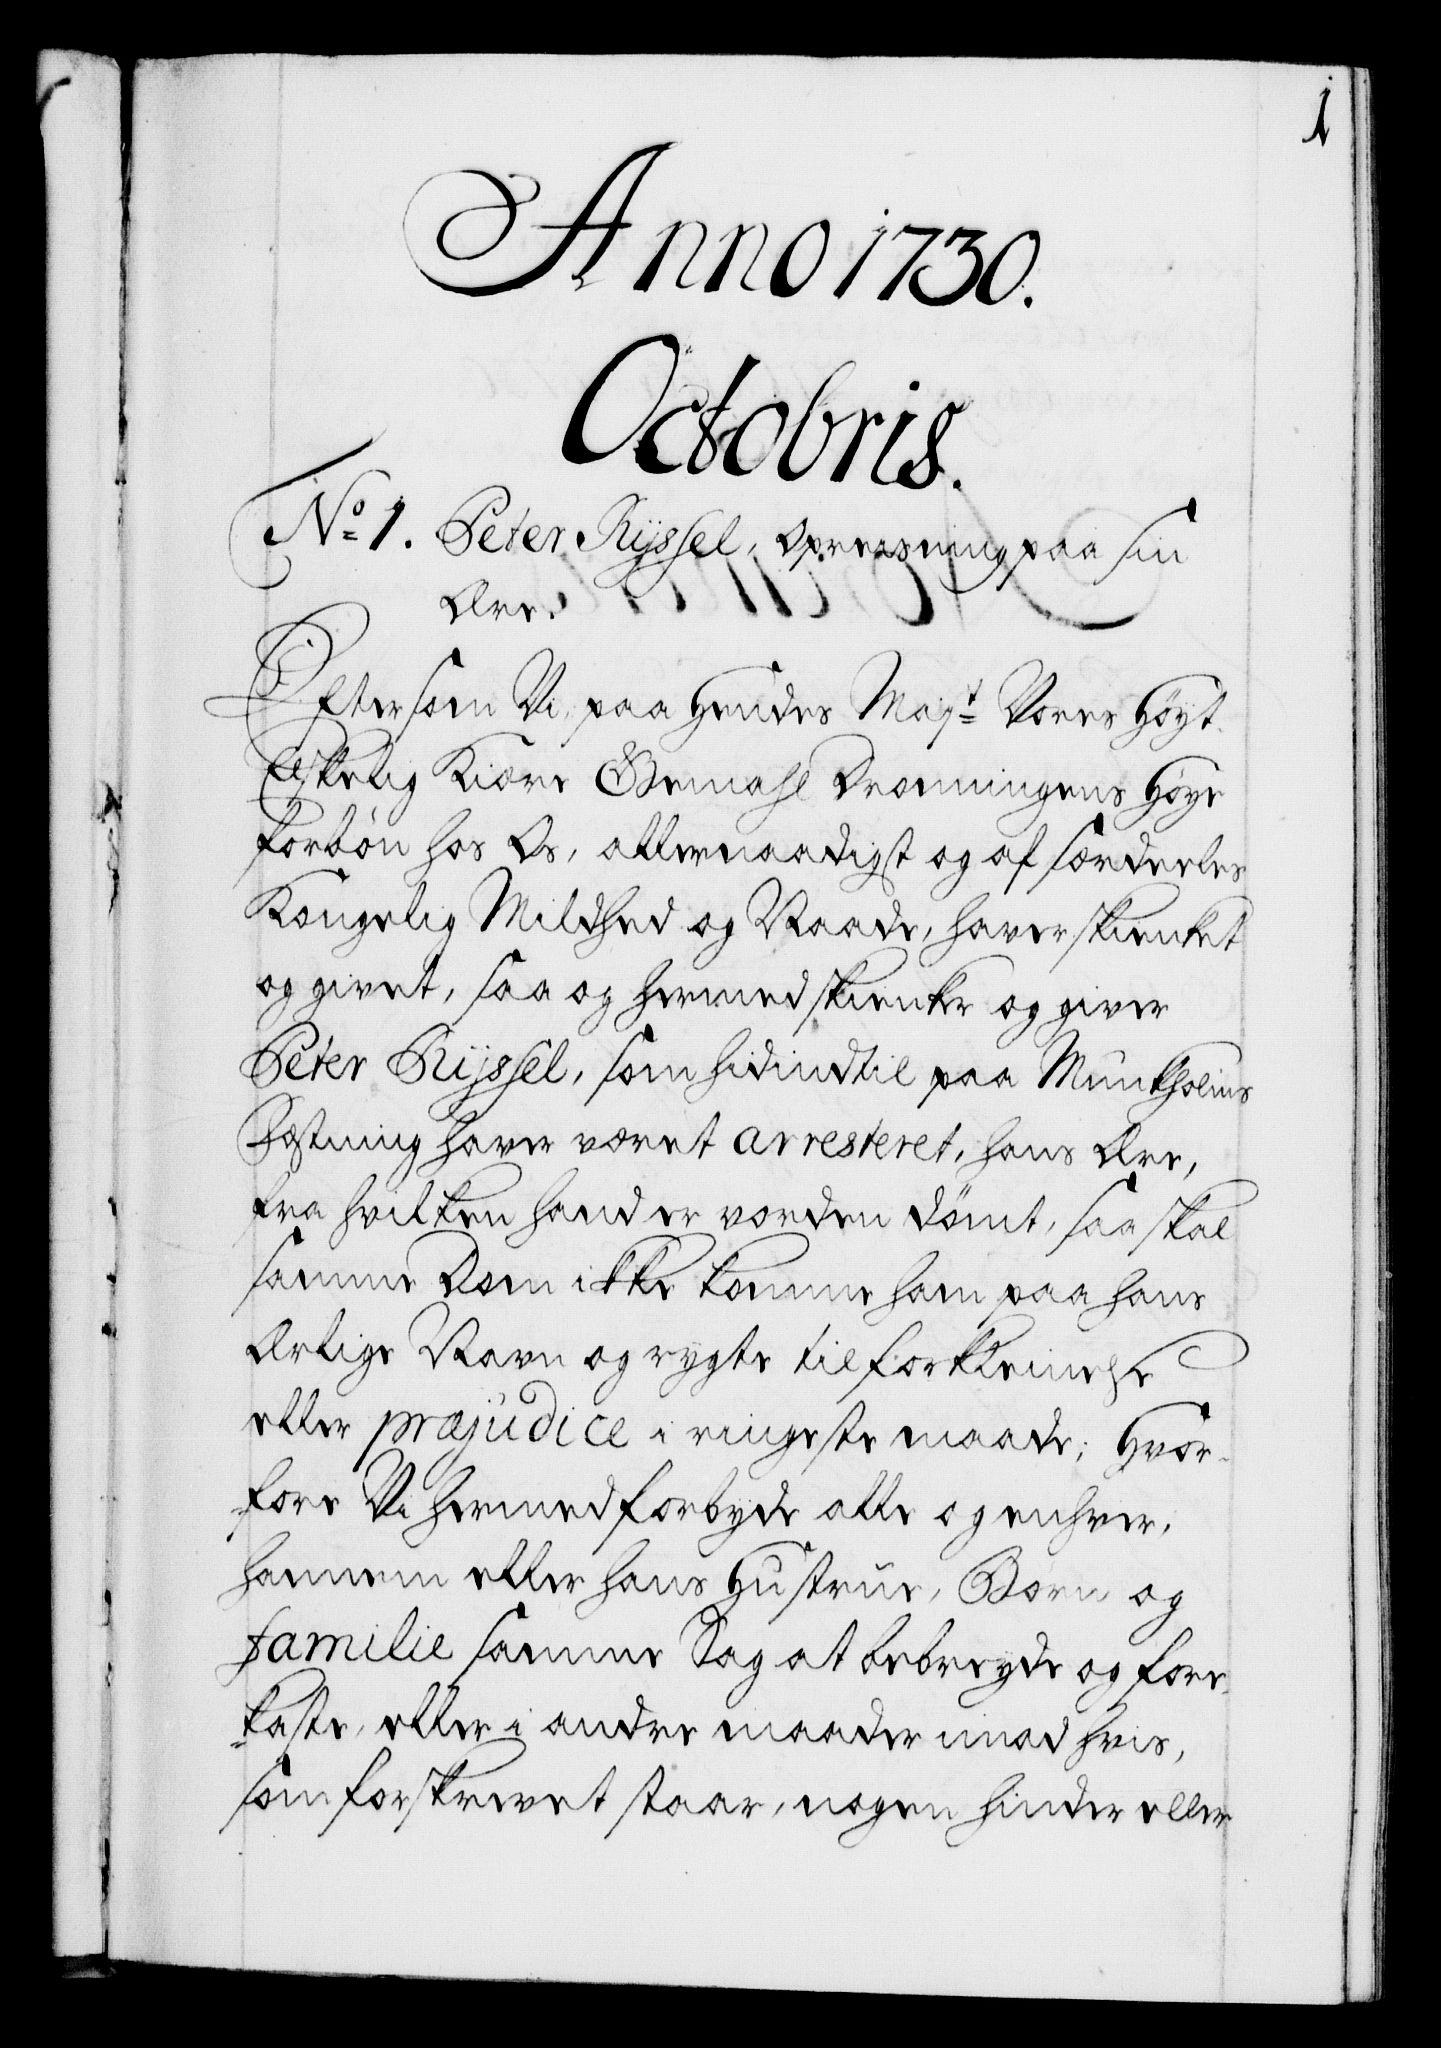 1
Anno 1730.
Octobris.
No 1. Peter Rijssel, Opreisning paa sin
Ære.
Eftersom Vi, paa Hendes Mayt Vores Høyt-
Elskelig Kiære Gemahl Dronningens Høye
forbøn hos Os, allernaadigst og af særdeeles
Kongelig Mildhed og Naade, haver skienket
og givet, saa og hermed skienke og giver
Peter Rijssel, som hidindtil paa Munkholms
Fæstning haver været arresteret, hans Ære,
fra hvilken hand er vorden dømt, saa skal
samme Dom ikke komme ham paa hans
Ærlige Navn og rygte til forkleinelse
eller præjudice i ringeste maade; Hvor-
fore Vi hermed forbyde alle og enhver,
hannem eller hans Hustrue, Børn og
familie samme Sag at bebreyde og fore-
kaste, eller i andre maader imod hvis,
som forskrevet staar, nogen hinder eller